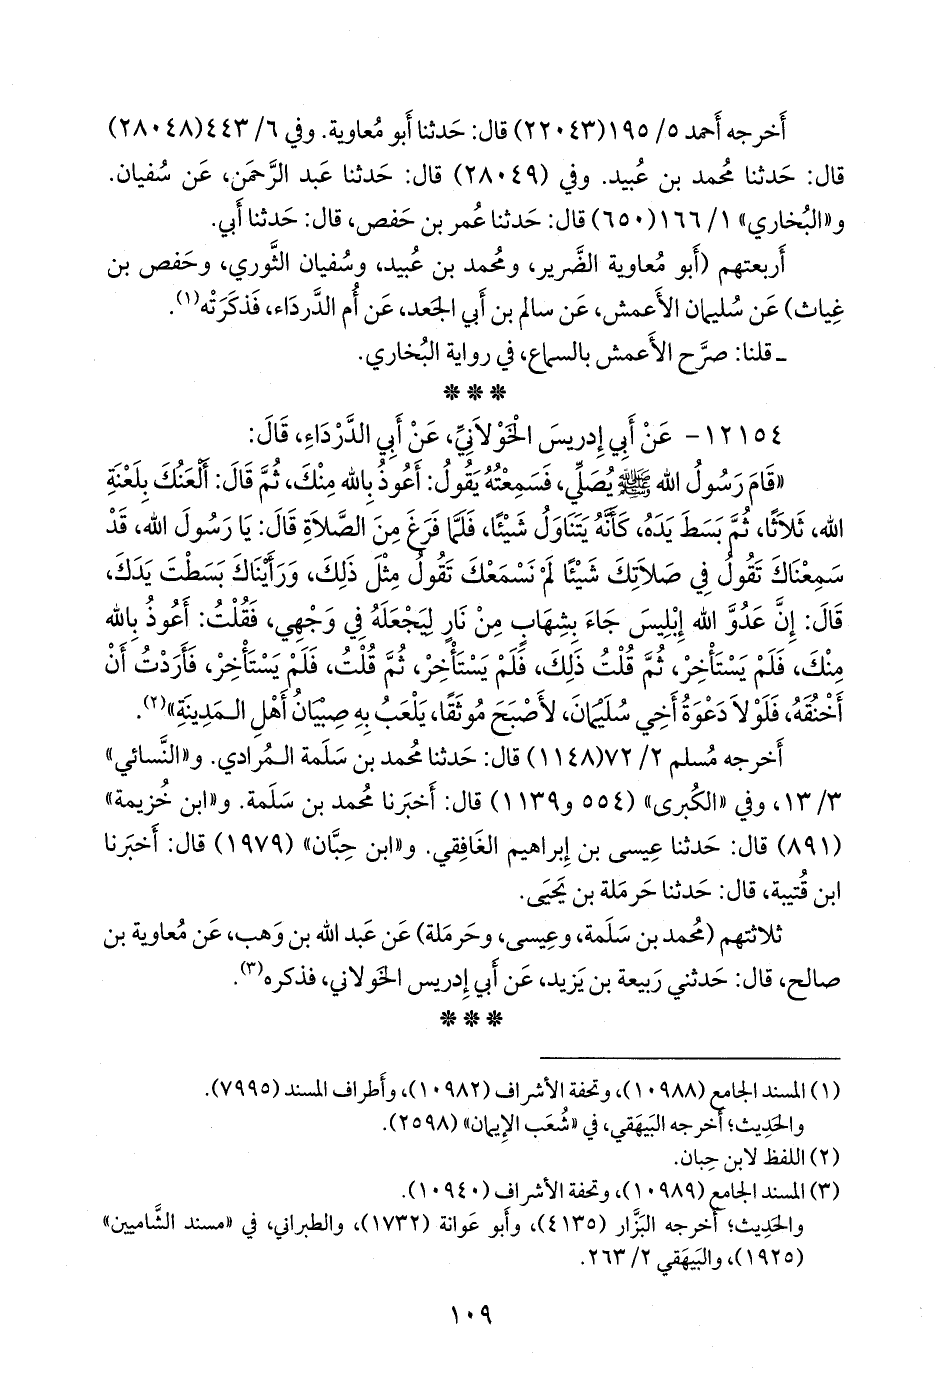 أَخرجه أَحمد ٥/ ١٩٥(٢٢٠٤٣) قال: حَدثنا أَبو مُعاوية. وفي ٦/ ٤٤٣(٢٨٠٤٨)
قال: حَدثنا مُحمد بن عُبيد. وفي (٢٨٠٤٩) قال: حَدثنا عَبد الرَّحمَن، عَن سُفيان.
و«البُخاري» ١/ ١٦٦(٦٥٠) قال: حَدثنا عُمر بن حَفص، قال: حَدثنا أَبي.
أَربعتهم (أَبو مُعاوية الضَّرير، ومُحمد بن عُبيد، وسُفيان الثَّوري، وحَفص بن
غِياث) عَن سُليمان الأَعمش، عَن سالم بن أَبي الجَعد، عَن أُم الدَّرداء، فَذكَرَتْه(١).
ـ قلنا: صرَّح الأَعمش بالسماع، في رواية البُخاري.
❊ ❊ ❊
١٢١٥٤- عَنْ أَبِي إِدريسَ الخَوْلَانِيِّ، عَنْ أَبِي الدَّرْدَاءِ، قَالَ:
«قَامَ رَسُولُ الله ﷺ يُصَلِّي، فَسَمِعْتُهُ يَقُولُ: أَعُوذُ بِالله مِنْكَ، ثُمَّ قَالَ: أَلْعَنُكَ بِلَعْنَةِ
الله، ثَلَاثًا، ثُمَّ بَسَطَ يَدَهُ، كَأَنَّهُ يَتَنَاوَلُ شَيْئًا، فَلَمَّا فَرَغَ مِنَ الصَّلَاةِ قَالَ: يَا رَسُولَ الله، قَدْ
سَمِعْنَاكَ تَقُولُ فِي صَلَاتِكَ شَيْئًا لَمْ نَسْمَعْكَ تَقُولُ مِثْلَ ذَلِكَ، وَرَأَيْنَاكَ بَسَطْتَ يَدَكَ،
قَالَ: إِنَّ عَدُوَّ الله إِبْلِيسَ جَاءَ بِشِهَابٍ مِنْ نَارٍ لِيَجْعَلَهُ فِي وَجْهِي، فَقُلْتُ: أَعُوذُ بِالله
مِنْكَ، فَلَمْ يَسْتَأْخِرْ، ثُمَّ قُلْتُ ذَلِكَ، فَلَمْ يَسْتَأْخِرْ، ثُمَّ قُلْتُ، فَلَمْ يَسْتَأْخِرْ، فَأَرَدْتُ أَنْ
أَخْنُقَهُ، فَلَوْلَا دَعْوَةُ أَخِي سُلَيْمَانَ، لأَصْبَحَ مُوثَقًا، يَلْعَبُ بِهِ صِبْيَانُ أَهْلِ الـمَدِينَةِ»(٢).
أَخرجه مُسلم ٢/ ٧٢(١١٤٨) قال: حَدثنا مُحمد بن سَلَمة الـمُرادي. و«النَّسائي»
٣/ ١٣، وفي «الكُبرى» (٥٥٤ و١١٣٩) قال: أَخبَرنا مُحمد بن سَلَمة. و«ابن خُزيمة»
(٨٩١) قال: حَدثنا عِيسى بن إِبراهيم الغَافِقي. و«ابن حِبَّان» (١٩٧٩) قال: أَخبَرنا
ابن قُتيبة، قال: حَدثنا حَرمَلة بن يَحيَى.
ثلاثتهم (مُحمد بن سَلَمة، وعِيسى، وحَرمَلة) عَن عَبد الله بن وَهب، عَن مُعاوية بن
صالح، قال: حَدثني رَبيعة بن يَزيد، عَن أَبي إِدريس الخَولاني، فذكره(٣).
❊ ❊ ❊
(١) المسند الجامع (١٠٩٨٨)، وتحفة الأشراف (١٠٩٨٢)، وأَطراف المسند (٧٩٩٥).
والحَدِيث؛ أَخرجه البَيهَقي، في «شُعَب الإيمان» (٢٥٩٨).
(٢) اللفظ لابن حِبان.
(٣) المسند الجامع (١٠٩٨٩)، وتحفة الأشراف (١٠٩٤٠).
والحَدِيث؛ أَخرجه البَزَّار (٤١٣٥)، وأَبو عَوانة (١٧٣٢)، والطبراني، في «مسند الشَّاميين»
(١٩٢٥)، والبَيهَقي ٢/ ٢٦٣.
١٠٩